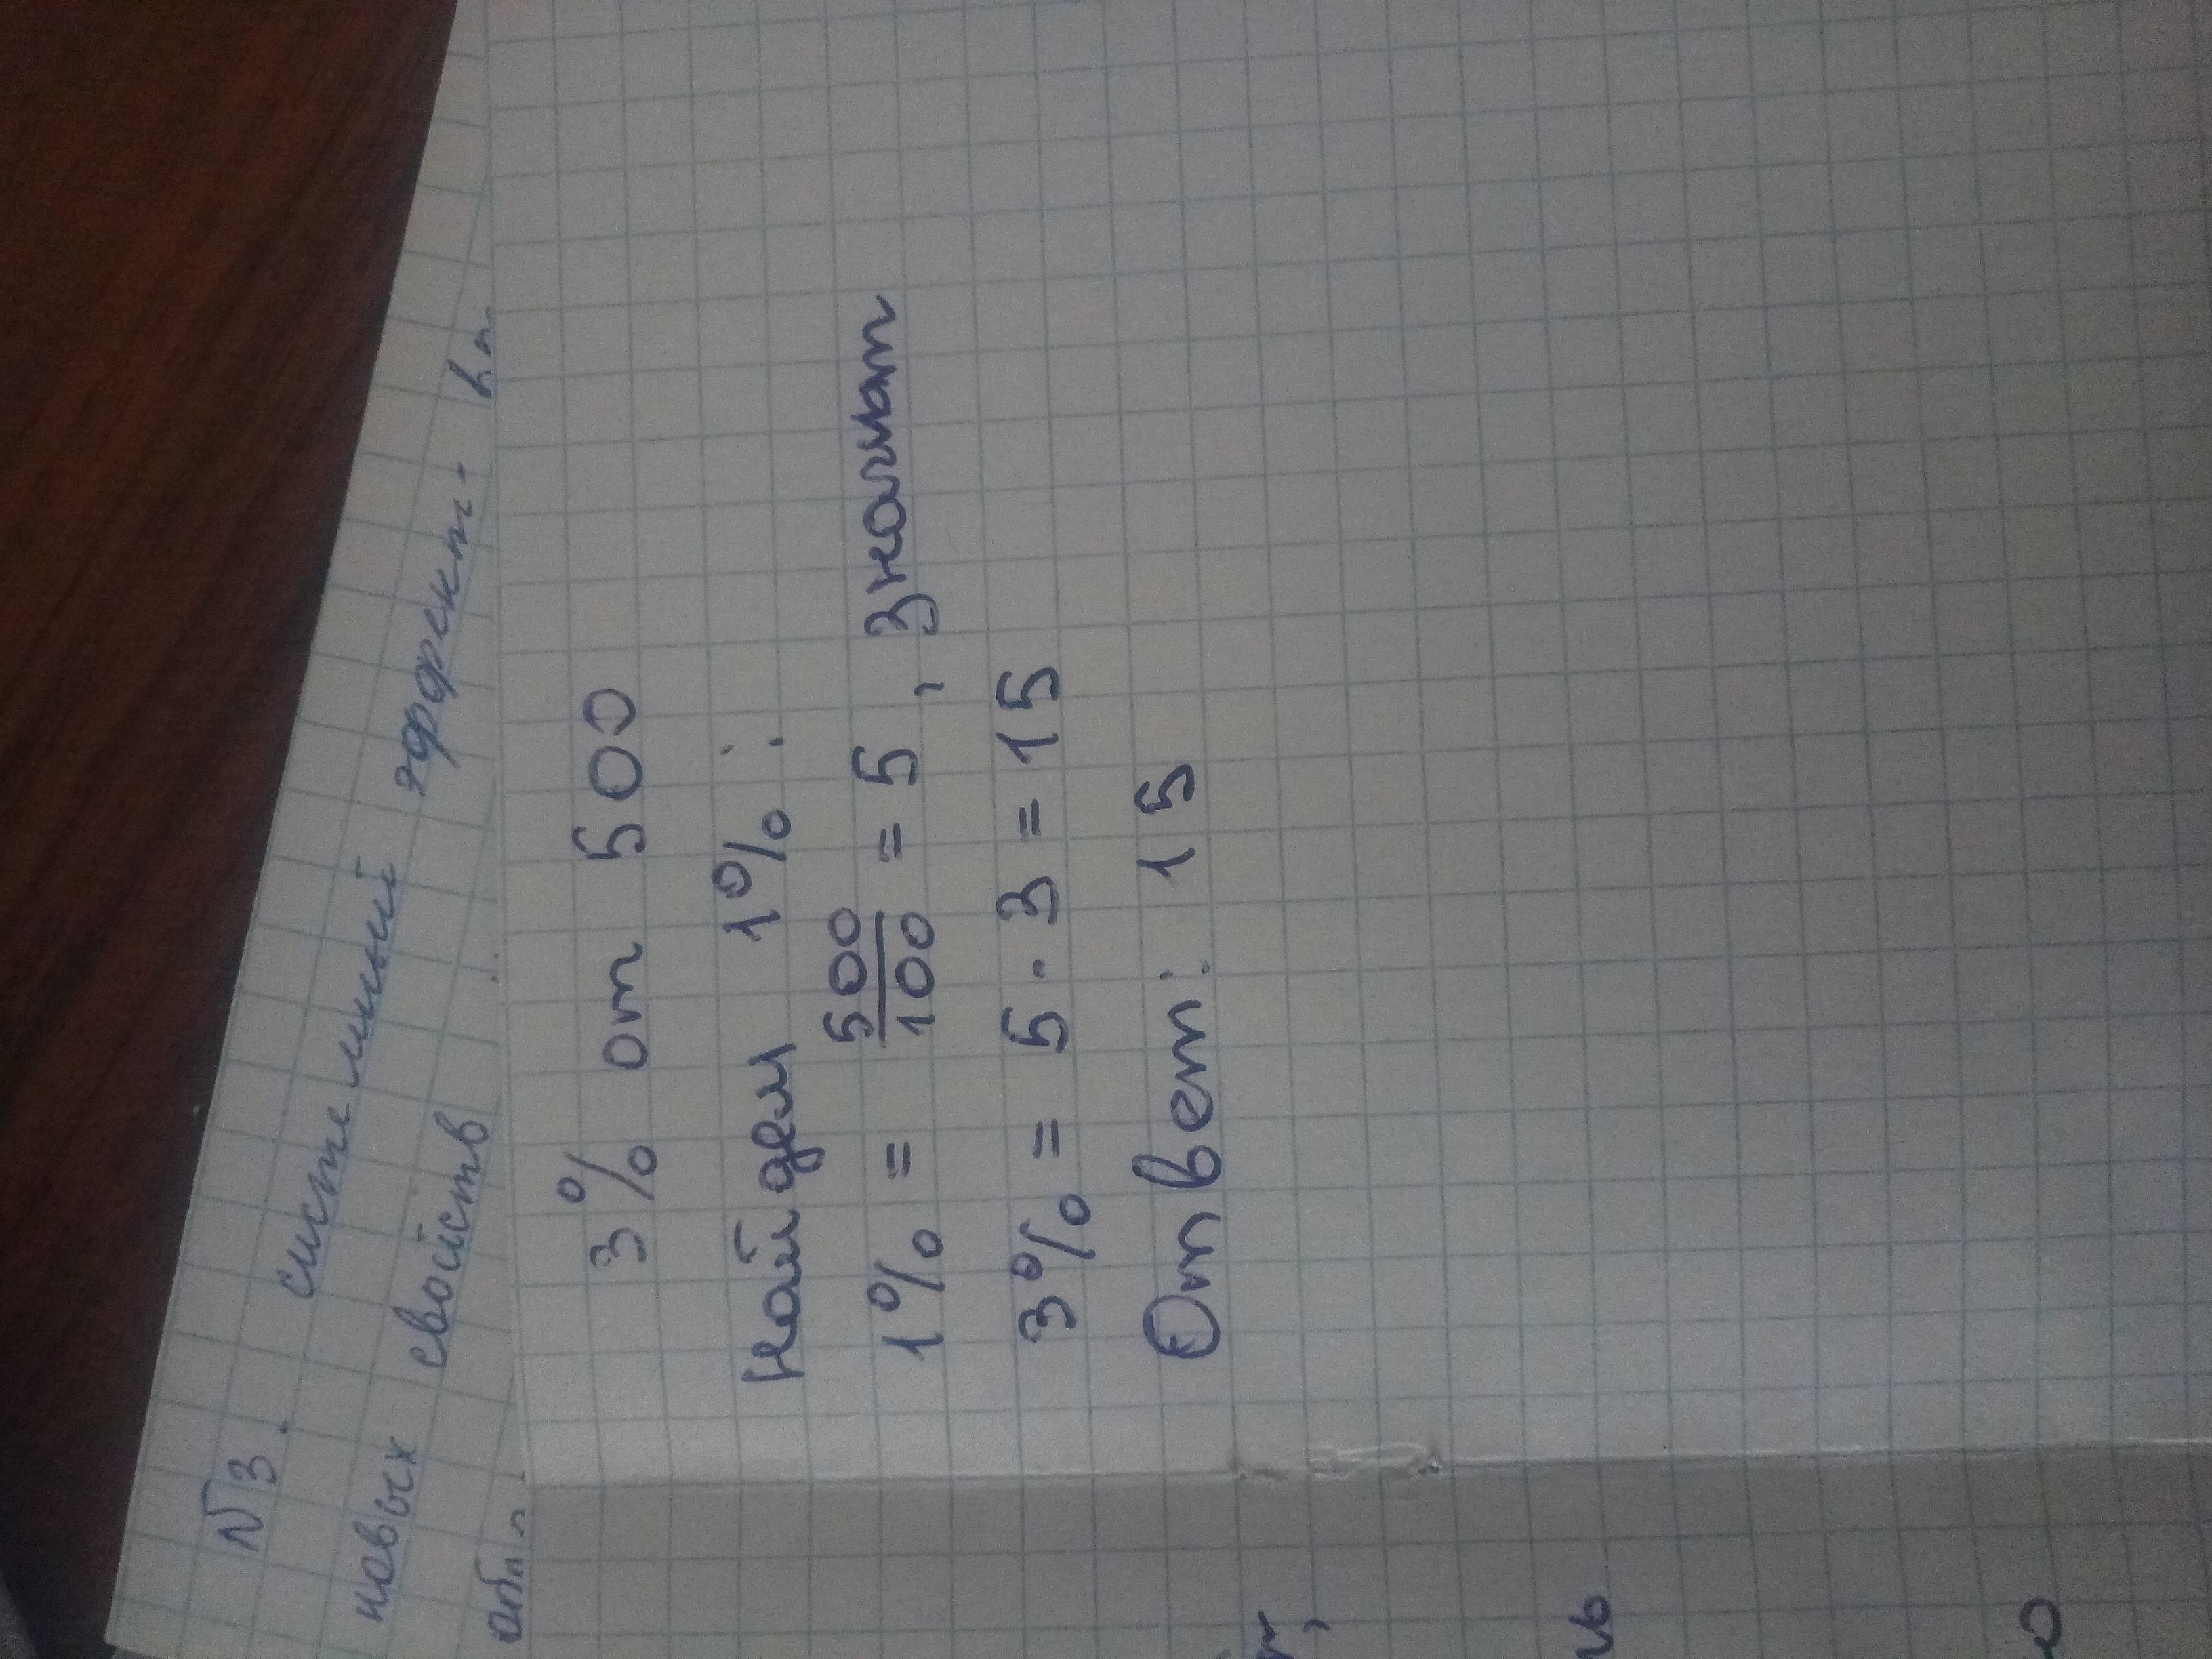 №3. системный эффект-
новых свойств
3% от 500
Найдем 1%:
1% = 500/100 = 5, значит
3% = 5 · 3 = 15
Ответ: 15